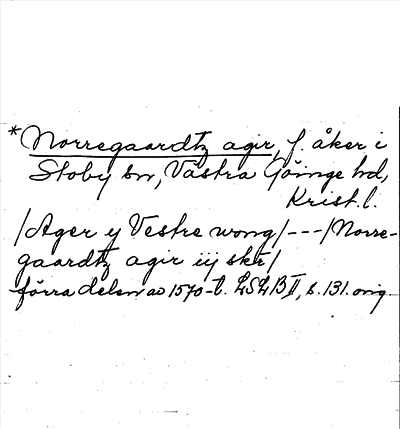 *Norregaardtz agir, f. åker i
Stoby sn, Västra Göinge hd,
Krist. l.
/Ager y Vestre wong/---/Norre-
gaardtz agir iij skr/
förra delen av 1570-t. LSLB II, s. 131. orig.